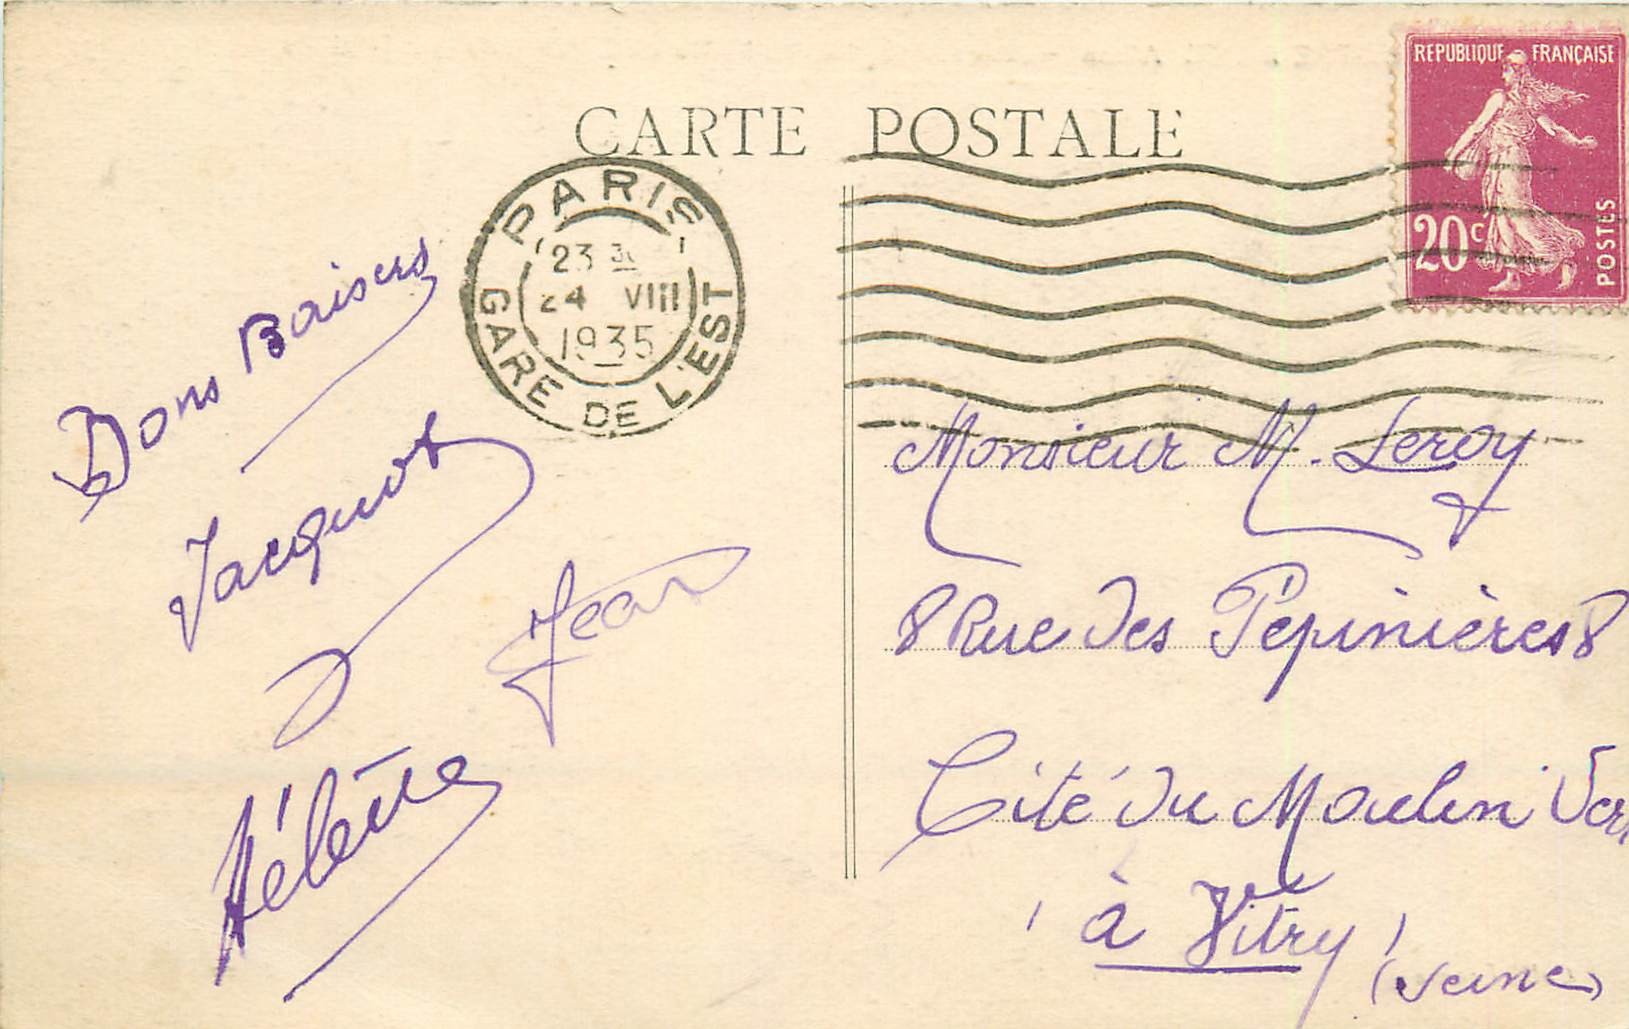 CARTE POSTALE
REPUBLIQUE FRANÇAISE
20c
POSTES
PARIS
23
24 VIII
1935
GARE DE L'EST
Bons Baisers
Jacquot
Jean
Hélène
Monsieur M. Leroy
8 Rue des Pépinières 8
Cité du Moulin Vert
à Vitry
(Seine)